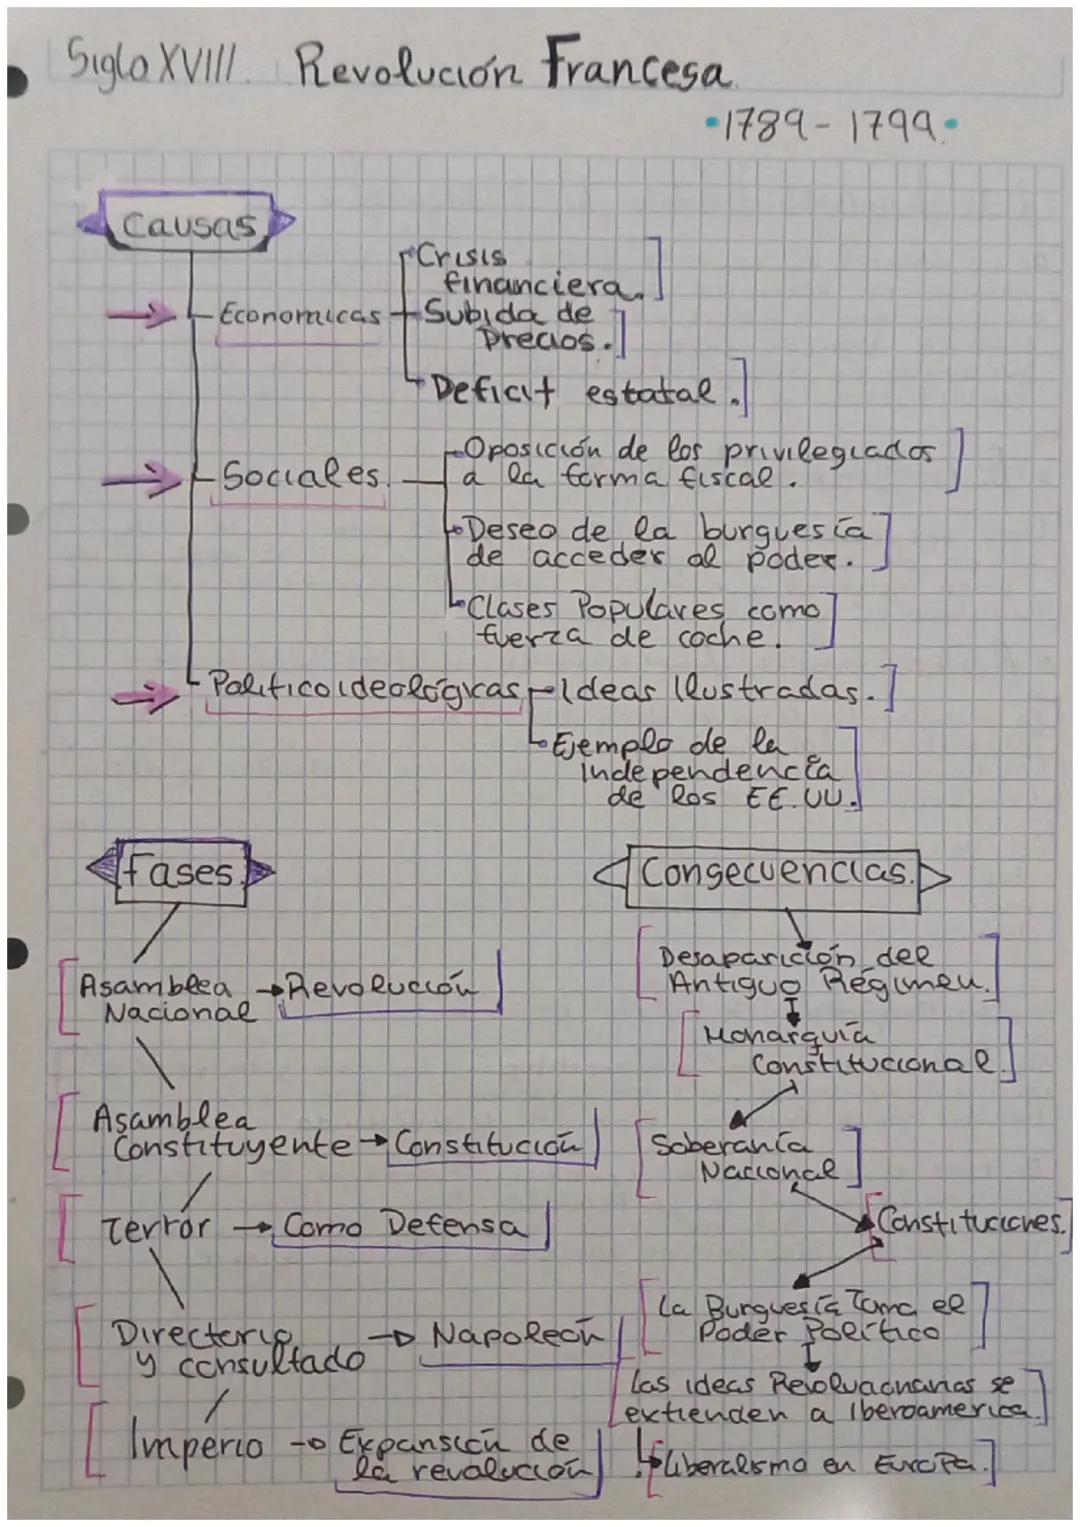 Siglo XVIII. Revolución Francesa.
•1789 - 1799.•
Causas
Crisis
financiera.
Economicas
Subida de
Precios.
Deficit estatal.
Sociales.
Oposición de los privilegiados
a la forma fiscal.
Deseo de la burguesía
de acceder al poder.
Clases Populares como
fuerza de coche.
Politicoideológicas
Ideas Ilustradas.
Ejemplo de la
independencia
de los EE.UU.
Fases.
Asamblea → Revolución
Nacional
Asamblea
Constituyente → Constitución
Terror → Como Defensa
Directorio → Napoleón
y consultado
Imperio → Expansión de
la revolución
Consecuencias.
Desaparición del
Antiguo Régimen.
Monarquía
Constitucional.
Soberanía
Nacional
Constituciones.
La Burguesía Toma el
Poder Político
Las ideas Revolucionarias se
extienden a Iberoamerica.
Liberalismo en Europa.